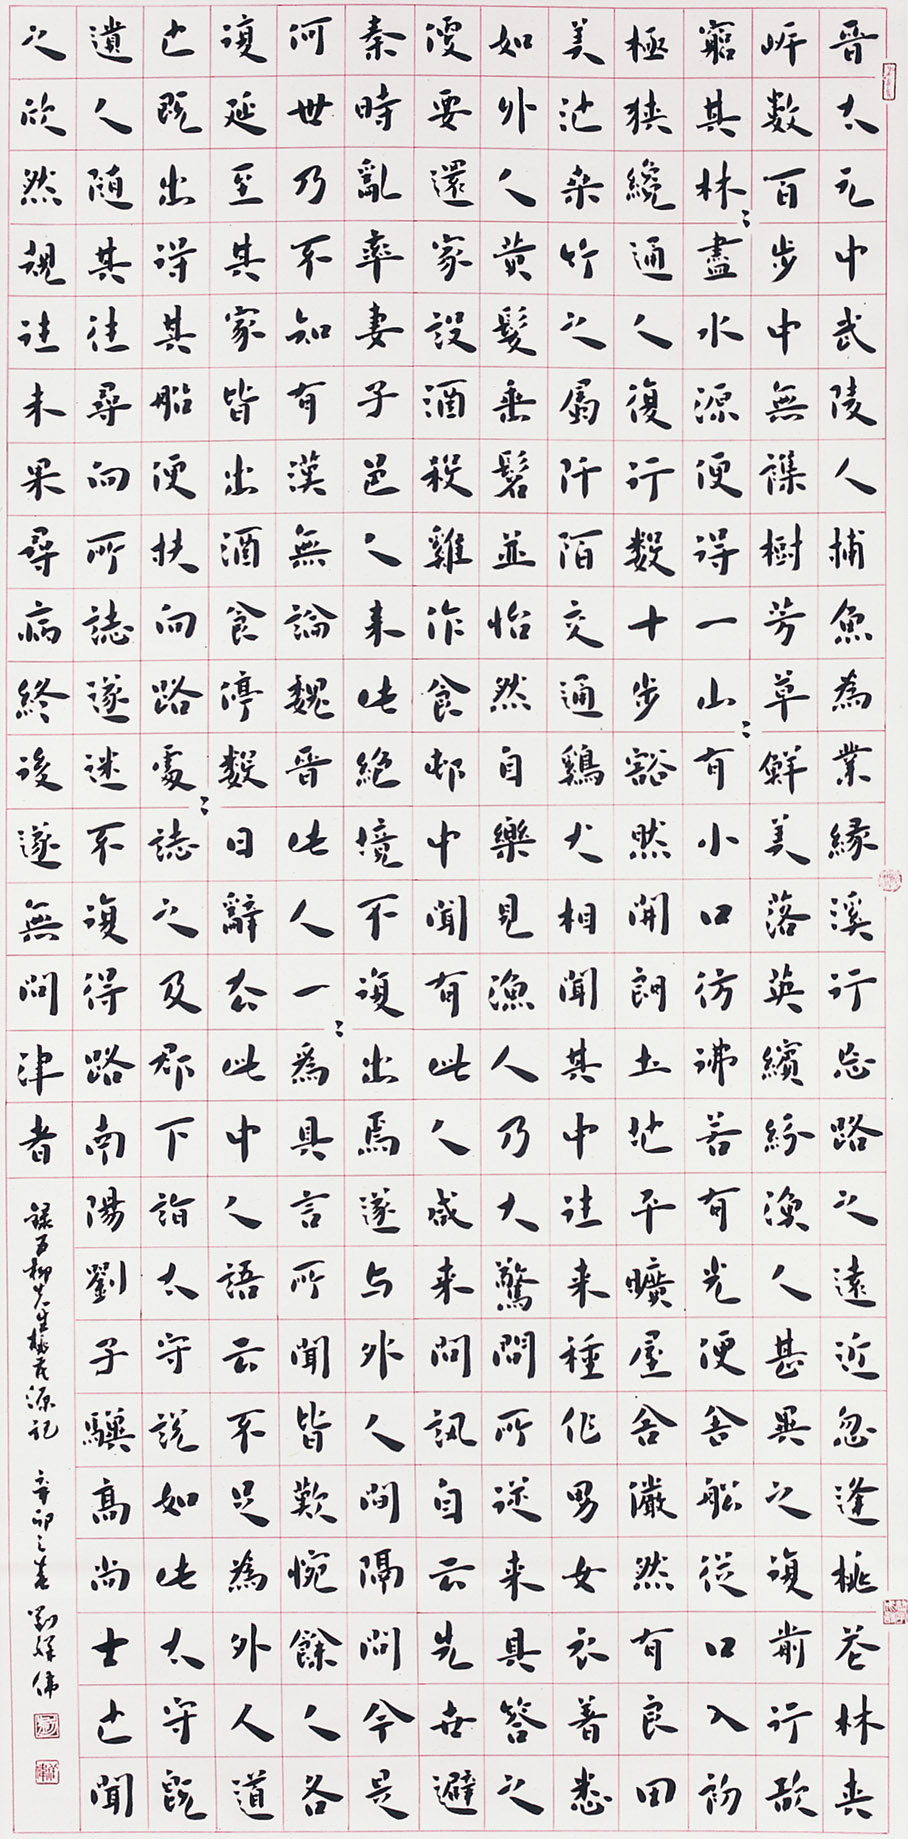 晉太元中武陵人捕魚為業緣溪行忘路之遠近忽逢桃花林夹
岍數百步中無襍樹芳草鮮美落英繽紛漁人甚異之復前行欲
窮其林〻盡水源便得一山〻有小口彷彿若有光便舍船從口入初
極狹纔通人復行數十步豁然開朗土地平曠屋舍儼然有良田
美池桑竹之屬阡陌交通鷄犬相聞其中往來種作男女衣著悉
如外人黃髮垂髫並怡然自樂見漁人乃大驚問所從來具答之
便要還家設酒殺雞作食邨中聞有此人咸來問訊自云先世避
秦時亂率妻子邑人來此絕境不復出焉遂与外人間隔問今是
何世乃不知有漢無論魏晉此人一〻為具言所聞皆歎惋餘人各
復延至其家皆出酒食停數日辭去此中人語云不足為外人道
也既出得其船便扶向路處〻誌之及郡下詣太守説如此太守既
遣人隨其往尋向所誌遂迷不復得路南陽劉子驥高尚士也聞
之欣然規往未果尋病終後遂無問津者
錄五柳先生桃花源記 辛卯之春 劉